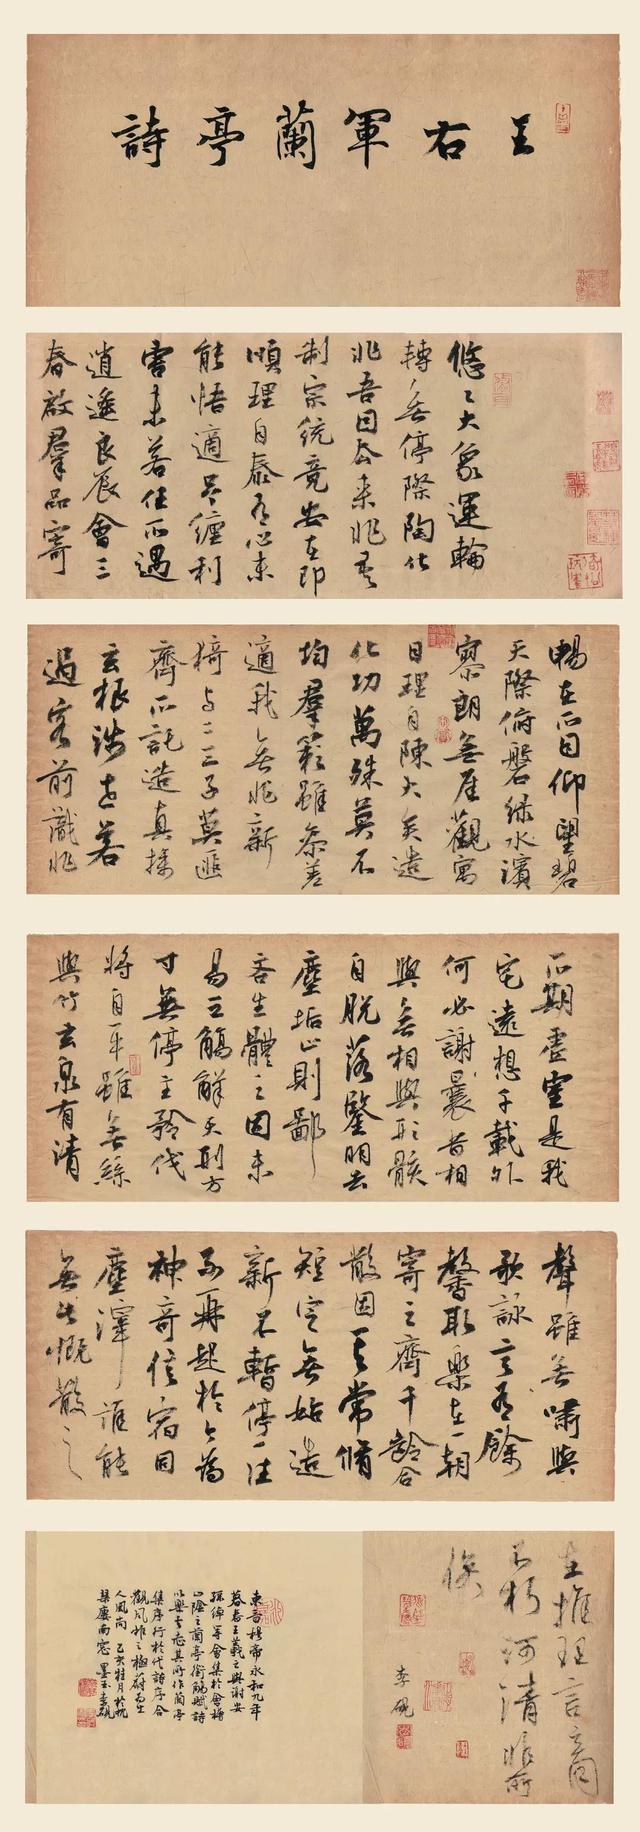 王右軍蘭亭詩
悠〻大象運輪
轉〻無停際陶化
非吾因去來非吾
制宗統竟安在即
順理自泰有心未
能悟適足纏利
害未若任所遇
逍遙良辰會三
春啟羣品寄
暢在所因仰望碧
天際俯磐綠水濱
寥朗無厓觀寓
目理自陳大矣造
化功萬殊莫不
均羣籟雖參差
適我〻無非新
猗與二三子莫匪
齊所託造真探
玄根涉世若
過客前識非
所期虛室是我
宅遠想千載外
何必謝曩昔相
與無相與形骸
自脫落鑒明去
塵垢止則鄙
吝生體之固未
易三觴解天刑方
寸無停主矜伐
將自平雖無絲
與竹玄泉有清
聲雖無嘯與
歌詠言有餘
馨取樂在一朝
寄之齊千齡合
散固其常脩
短定無始造
新不暫停一往
不再起於今為
神奇信宿同
塵滓誰能
無此慨散之
在推理言立同
不朽河清非所
俟
李硯
東晉穆帝永和九年
暮春王羲之與謝安
孫綽等會集於會稽
山陰之蘭亭銜觴賦詩
以興者志其所作蘭亭
集序行於代詩序合
觀風雅之極蔚為生
人風尚乙亥桂月於杭